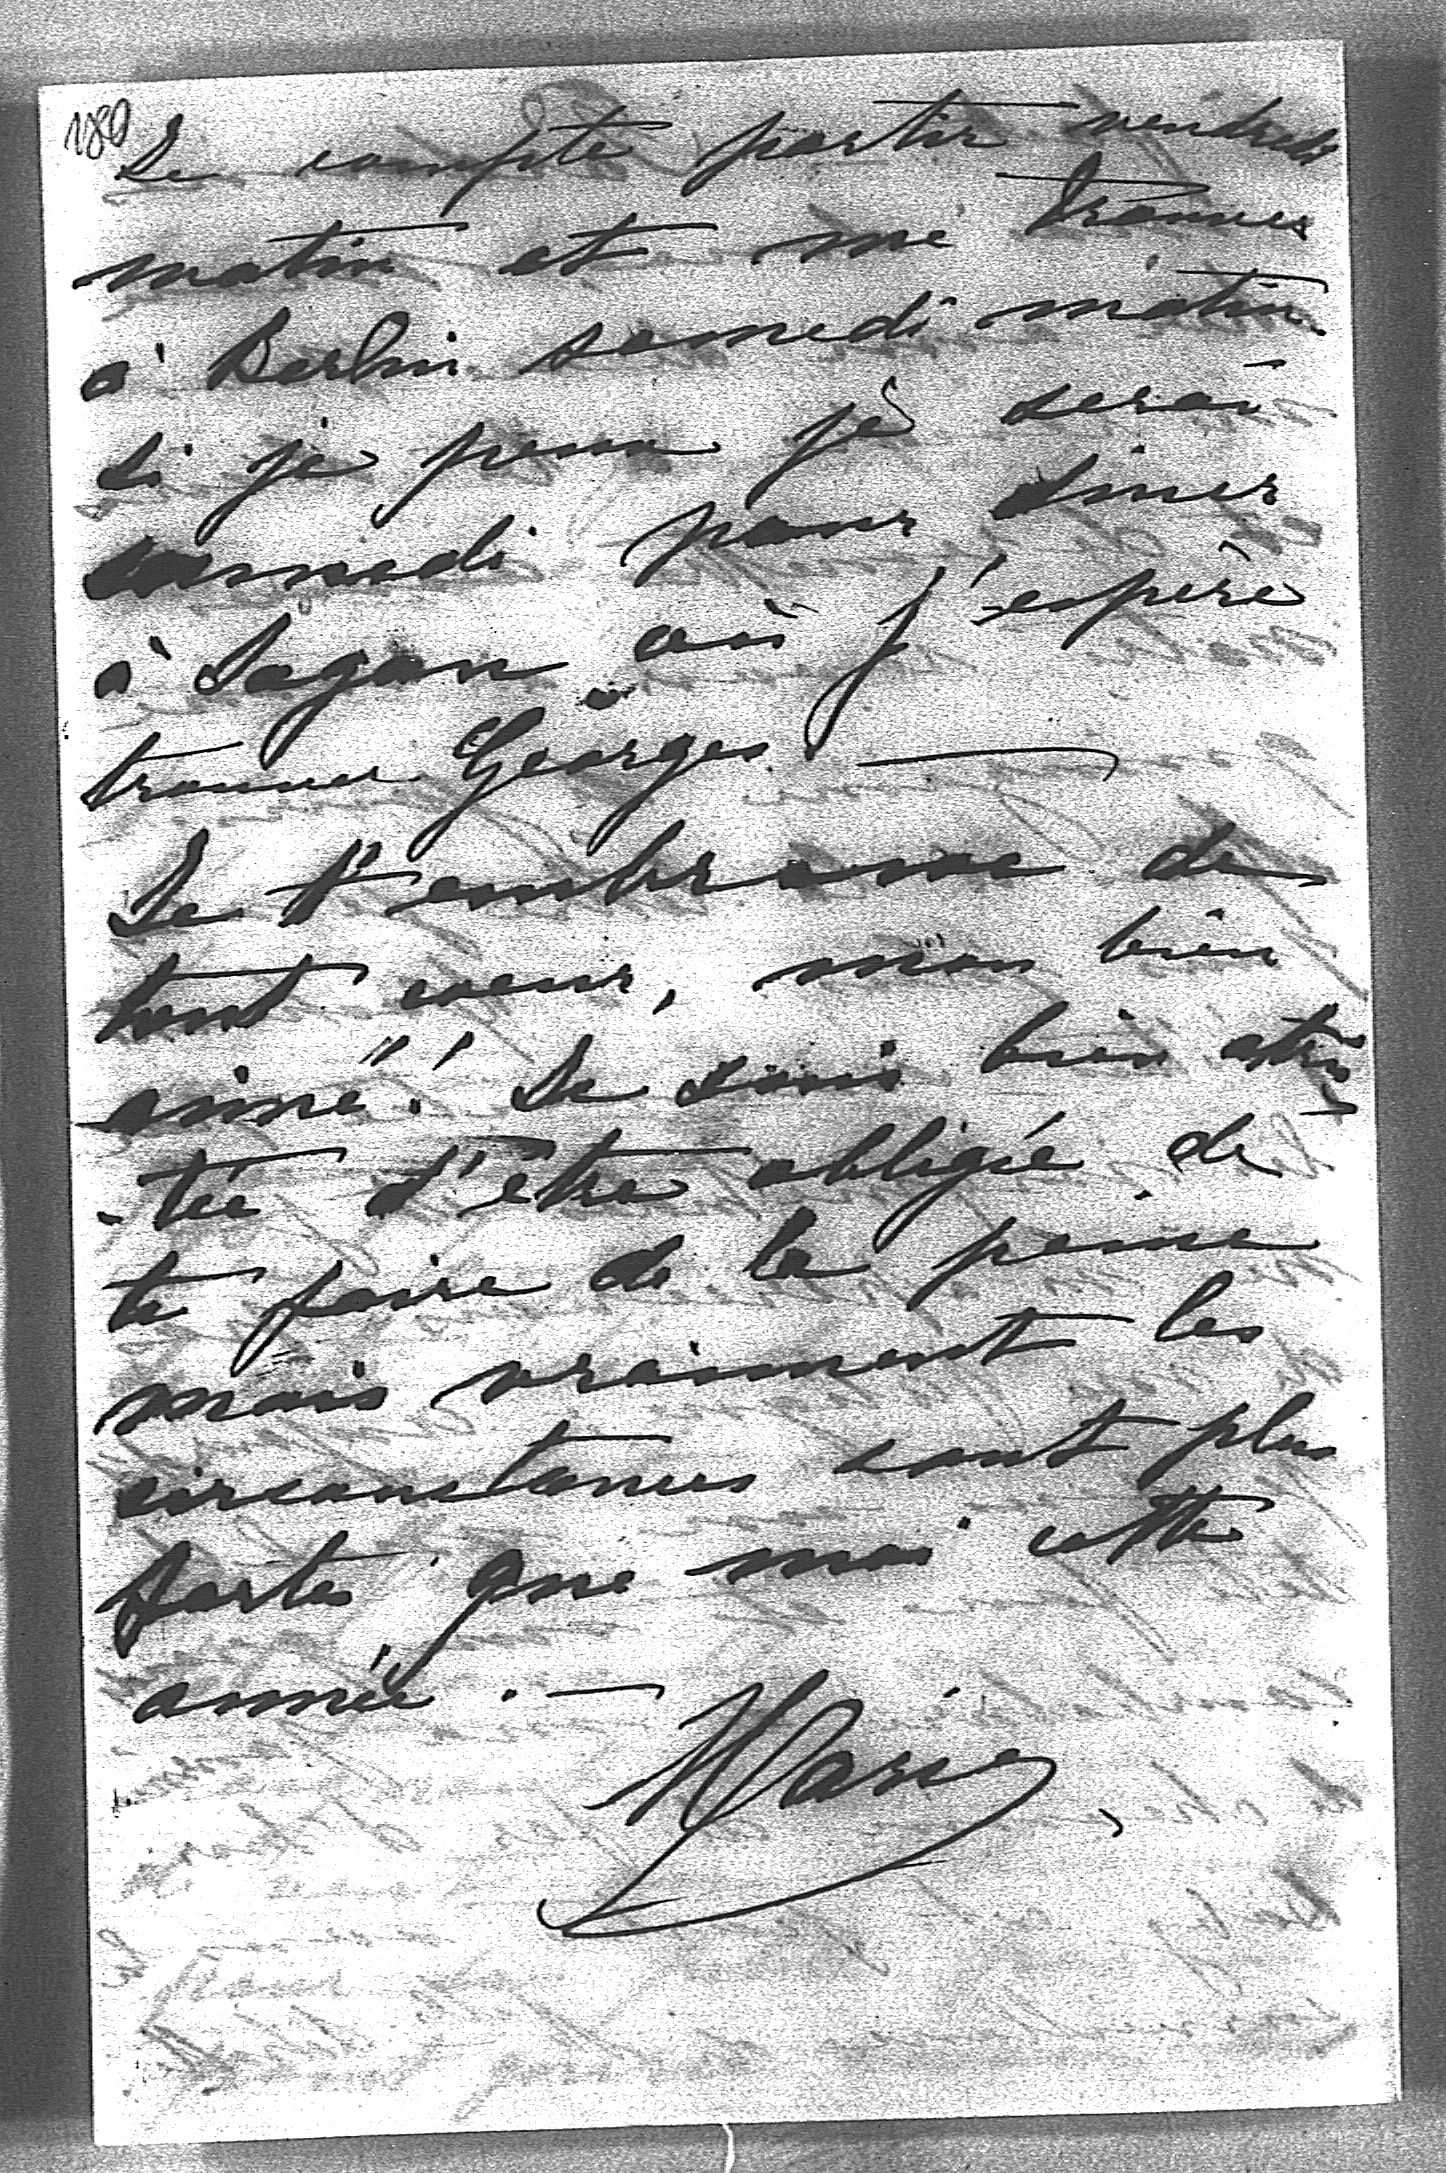 180
Je compte partir vendredi
matin et me trouver
à Berlin samedi matin.
Si je peux je serai
samedi pour diner
à Sagan où j'espère
trouver Georges. —
Je t'embrasse de
tout coeur, mon bien
aimé! Je suis bien attris
-tée d'être obligée de
te faire de la peine
mais vraiment les
circonstances sont plus
fortes que moi cette
année. —
Marie